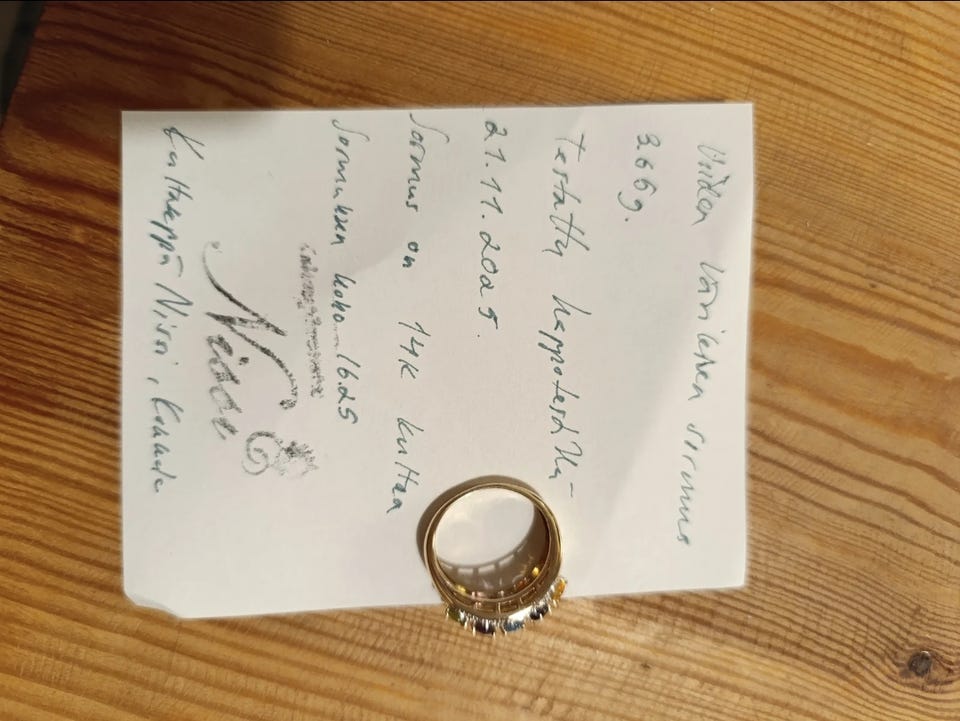 Viiden värinen sormus
3.66g.
Testattu happotestillä
21.11.2025.
Sormus on 14K kultaa
Sormuksen koko 16.25
Kultaseppä